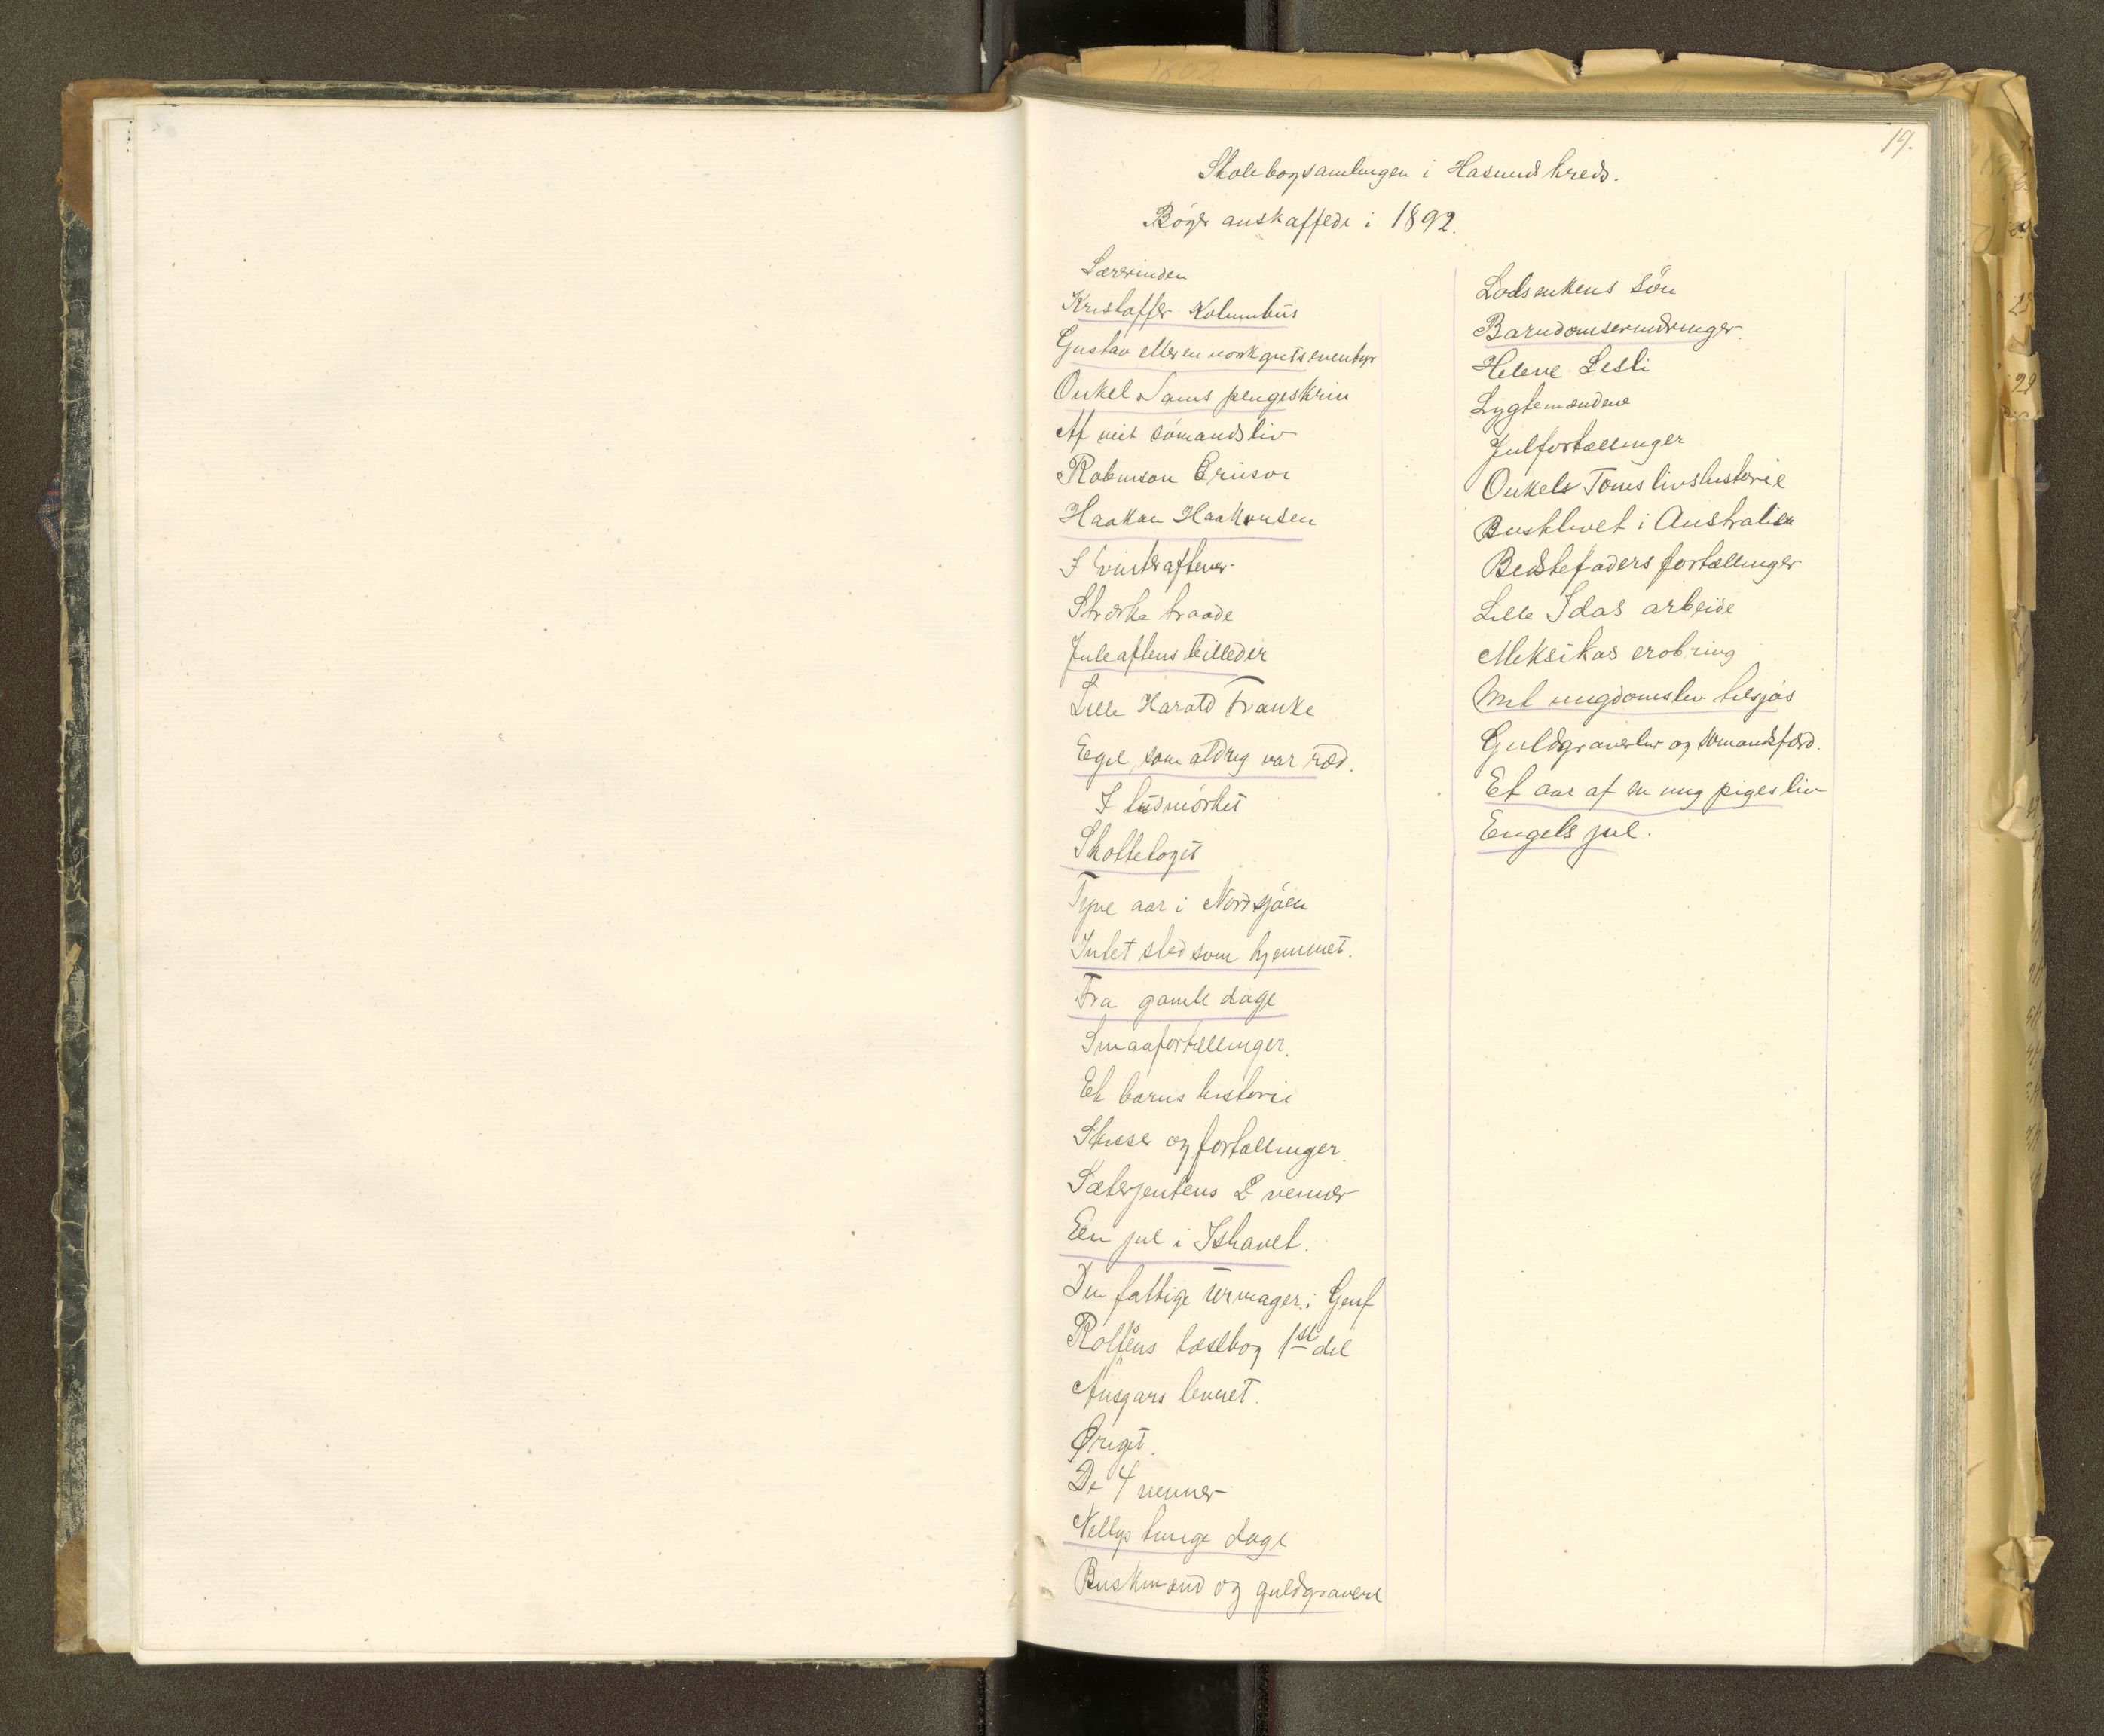 19.
Skolebogsamlingen i Hasund kreds.
Bøger anskaffede i 1892.
Lærerinden
Kristoffer Kolumbus
Gustav eller en norsk guts eventyr
Onkel Sams pengeskrin
Af mit sømandsliv
Robinson Crusoe
Haakon Haakonsen
I vinteraftener
Stærke traade
Juleaftens billeder
Lille Harald Franke
Egil, som aldrig var ræd.
I tusmørket
Skottetoget
Tyve aar i Nordsjøen
Intet sted som hjemmet.
Fra gamle dage
Smaafortællinger.
Et barns historie
Skisser og fortællinger.
Sæterjentens 2 venner
En jul i Ishavet.
Den fattige urmager i Genf
Rolfsens læsebog 1ste del
Ansgars levnet.
Øriget.
De 4 venner
Nellys tunge dage
Buskmænd og guldgravere
Lodsenkens søn
Barndomserindringer.
Helene Lesli
Lygtemændene
Julfortællinger
Onkels Toms livshistorie
Busklivet i Australien
Bedstefaders fortællinger
Lille Idas arbeide
Meksikos erobring
Mit ungdomsliv tilsjøs
Guldgraverliv og sømandsfærd.
Et aar af en ung piges liv
Engels jul.